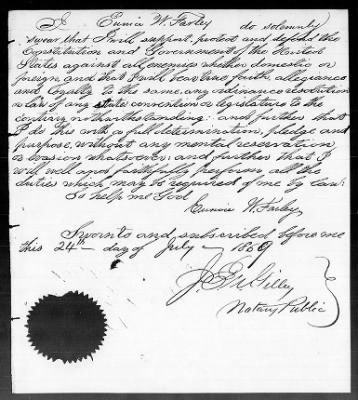 I Eunice W. Farley do solemnly
swear that I will support, protect and defend the
Constitution and Government of the United
States against all enemies whether domestic or
foreign, and that I will bear true faith, allegiance
and loyalty to the same, any ordinance resolution
or law of any state convention or legislature to the
contrary notwithstanding: and further that
I do this with a full determination, pledge and
purpose, without any mental reservation
or evasion whatsoever: and further that I
will well and faithfully perform all the
duties which may be required of me by law:
So help me God
Eunice W. Farley
Sworn to and subscribed before me
this 24th day of July 1889
Notary Public